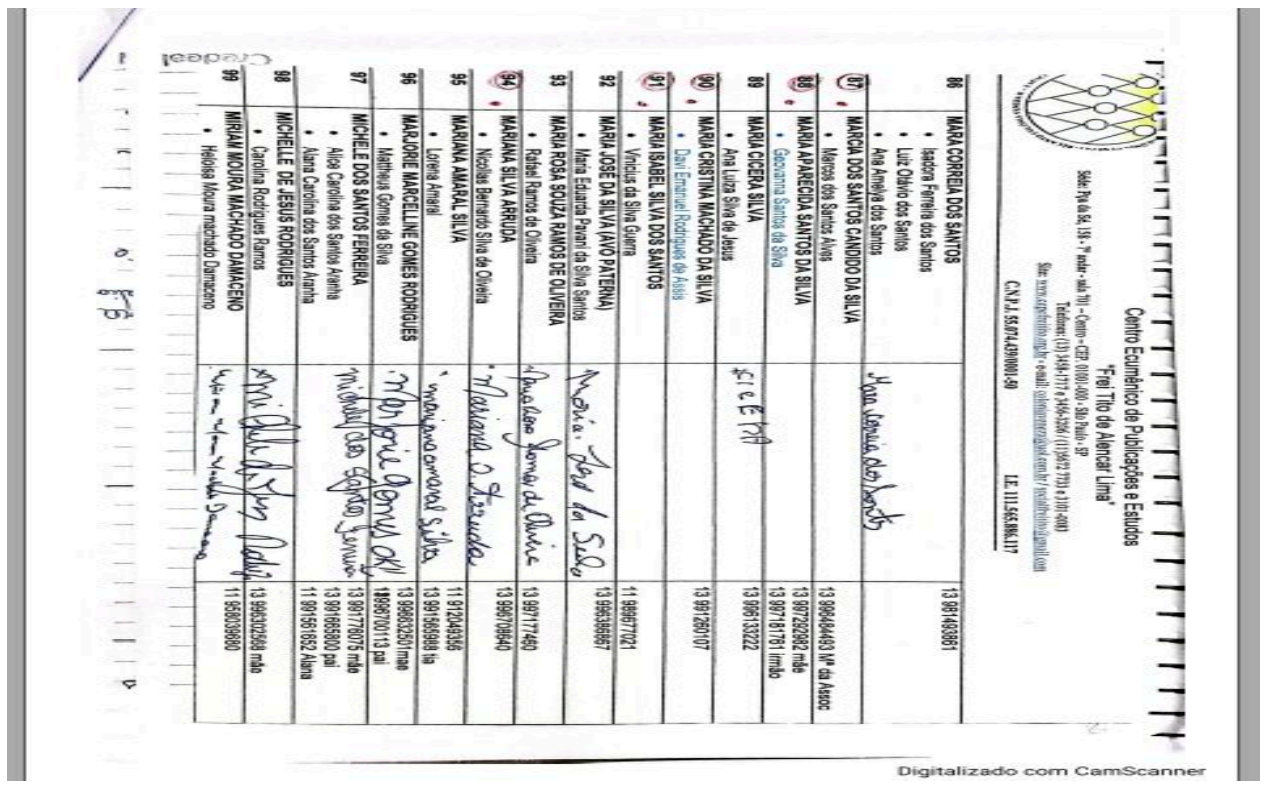 Centro Ecumênico de Publicações e Estudos
"Frei Tito de Alencar Lima"
Sede: Pça da Sé, 158 - 7º andar - sala 701 – Centro – CEP: 01001-000 - São Paulo - SP
C.N.P.J. 55.074.439/0001-90 I.E. 111.565.886.117
86 MARA CORREIA DOS SANTOS
• Isadora Ferreira dos Santos
• Luiz Otávio dos Santos
• Ana Amelya dos Santos
Mara Correia dos Santos
13 981493861
87 MARCIA DOS SANTOS CANDIDO DA SILVA
• Marcos dos Santos Alves
13 996484493 Mª da Assoc
88 MARIA APARECIDA SANTOS DA SILVA
• Geovanna Santos da Silva
13 997292982 mãe
13 997181761 irmão
89 MARIA CICERA SILVA
• Ana Luiza Silva de Jesus
CICERA
13 996133222
90 MARIA CRISTINA MACHADO DA SILVA
• Davi Emanuel Rodrigues de Assis
13 991260107
91 MARIA ISABEL SILVA DOS SANTOS
• Vinicius da Silva Guerra
11 989677021
92 MARIA JOSÉ DA SILVA (AVO PATERNA)
• Maria Eduarda Pavani da Silva Santos
Maria José da Silva
13 996386867
93 MARIA ROSA SOUZA RAMOS DE OLIVEIRA
• Rafael Ramos de Oliveira
13 997177460
94 MARIANA SILVA ARRUDA
• Nicollas Bernardo Silva de Oliveira
Mariana S. Arruda
13 996708640
95 MARIANA AMARAL SILVA
• Lorena Amaral
mariana amaral Silva
11 912049356
13 991565988 tia
96 MARJORIE MARCELLINE GOMES RODRIGUES
• Matheus Gomes da Silva
Marjorie Gomes
13 996632501mae
13996700113 pai
97 MICHELE DOS SANTOS FERREIRA
• Alice Carolina dos Santos Aranha
• Alana Carolina dos Santos Aranha
Michele dos Santos Ferreira
13 991776075 mãe
13 991665800 pai
11 991561652 Alana
98 MICHELLE DE JESUS RODRIGUES
• Carolina Rodrigues Ramos
13 996302568 mão
99 MIRIAN MOURA MACHADO DAMACENO
• Heloisa Moura machado Damaceno
11 958039680
Credeal
Digitalizado com CamScanner